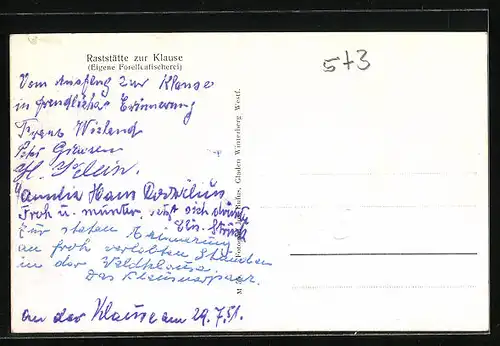 Raststätte zur Klause
(Eigene Forellenfischerei)
573
Vom Ausflug zur Klause
in freudlicher Erinnerung
Franz Wieland
Peter
H. Klein.
Familie Hans
Froh u. munter, setzt sich
Zur steten Erinnerung
an froh verlebten Stunden
in der Waldklause
Das Klausnerpaar.
An der Klause am 29.7.51.
Gladen Winterberg Westf.